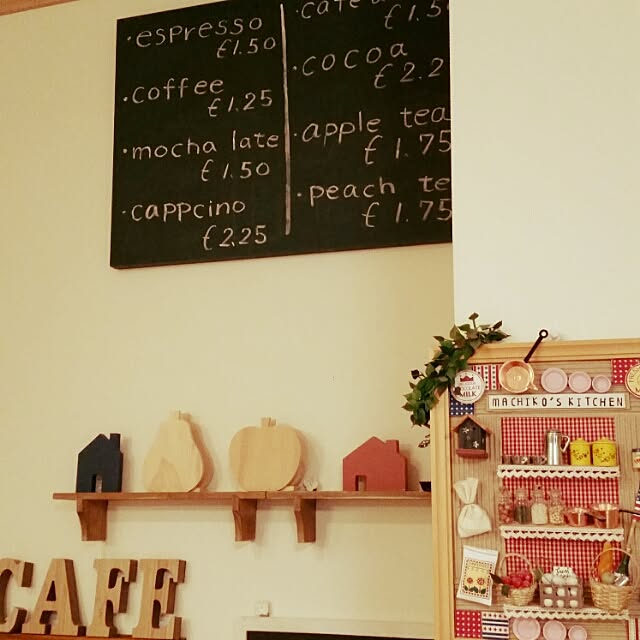 ·espresso
£1.50
·coffee
£1.25
·mocha late
£1.50
·cappcino
£2.25
£1.5
·cocoa
£2.2
·apple tea
£1.75
·peach te
£1.75
MILK
MACHIKO'S KITCHEN
CAFE